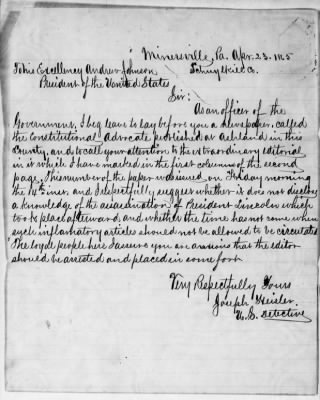 Minersville, Pa. Apr. 23. 1865
Schuylkill Co.
To his Excellency Andrew Johnson
President of the United States
Sir:
As an officer of the
Government, I beg leave to lay before you a newspaper, called
the Constitutional Advocate published at Ashland in this
County, and to call your attention to the extraordinary editorial
in it which I have marked in the first column of the second
page. This number of the paper was issued on Friday morning
the 14th inst. and I respectfully suggest whether it does not disclose
a knowledge of the assassination of President Lincoln which
took place afterward, and whether the time has not come when
such inflamatory articles should not be allowed to be circulated.
The loyal people here I assure you are anxious that the editor
should be arrested and placed in some fort.
Very Respectfully Yours
Joseph Heisler.
U.S. Detective